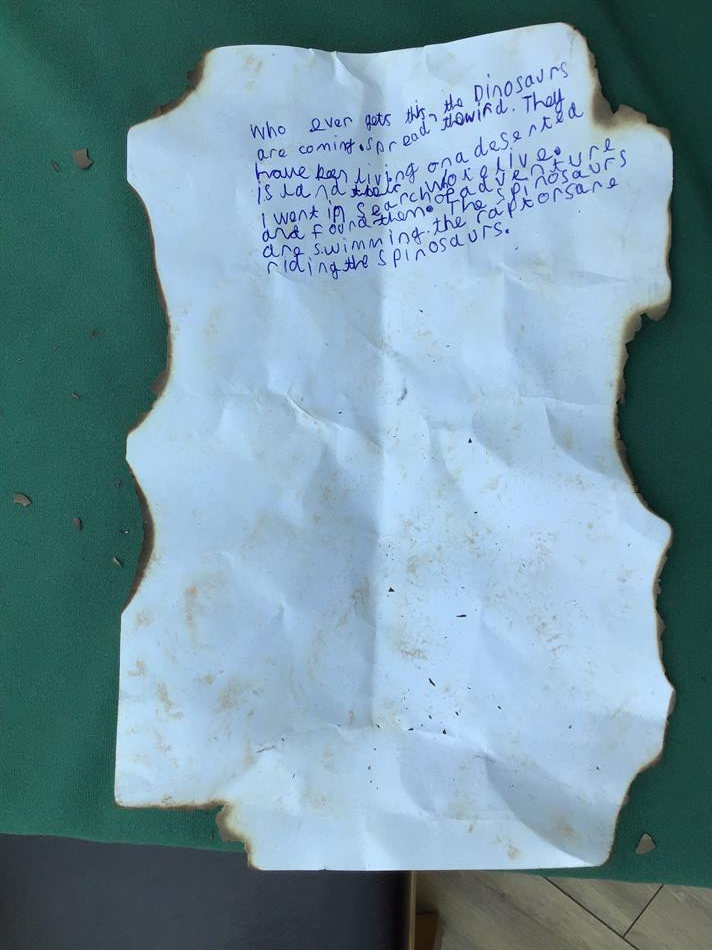 Who ever gets this the Dinosaurs
are coming. spread the wird. They
have ben living on a deserted
island their whole live.
I went in search of adventure
and found them. The Spinosaurs
are swimming. the raptors are
riding the spinosaurs.